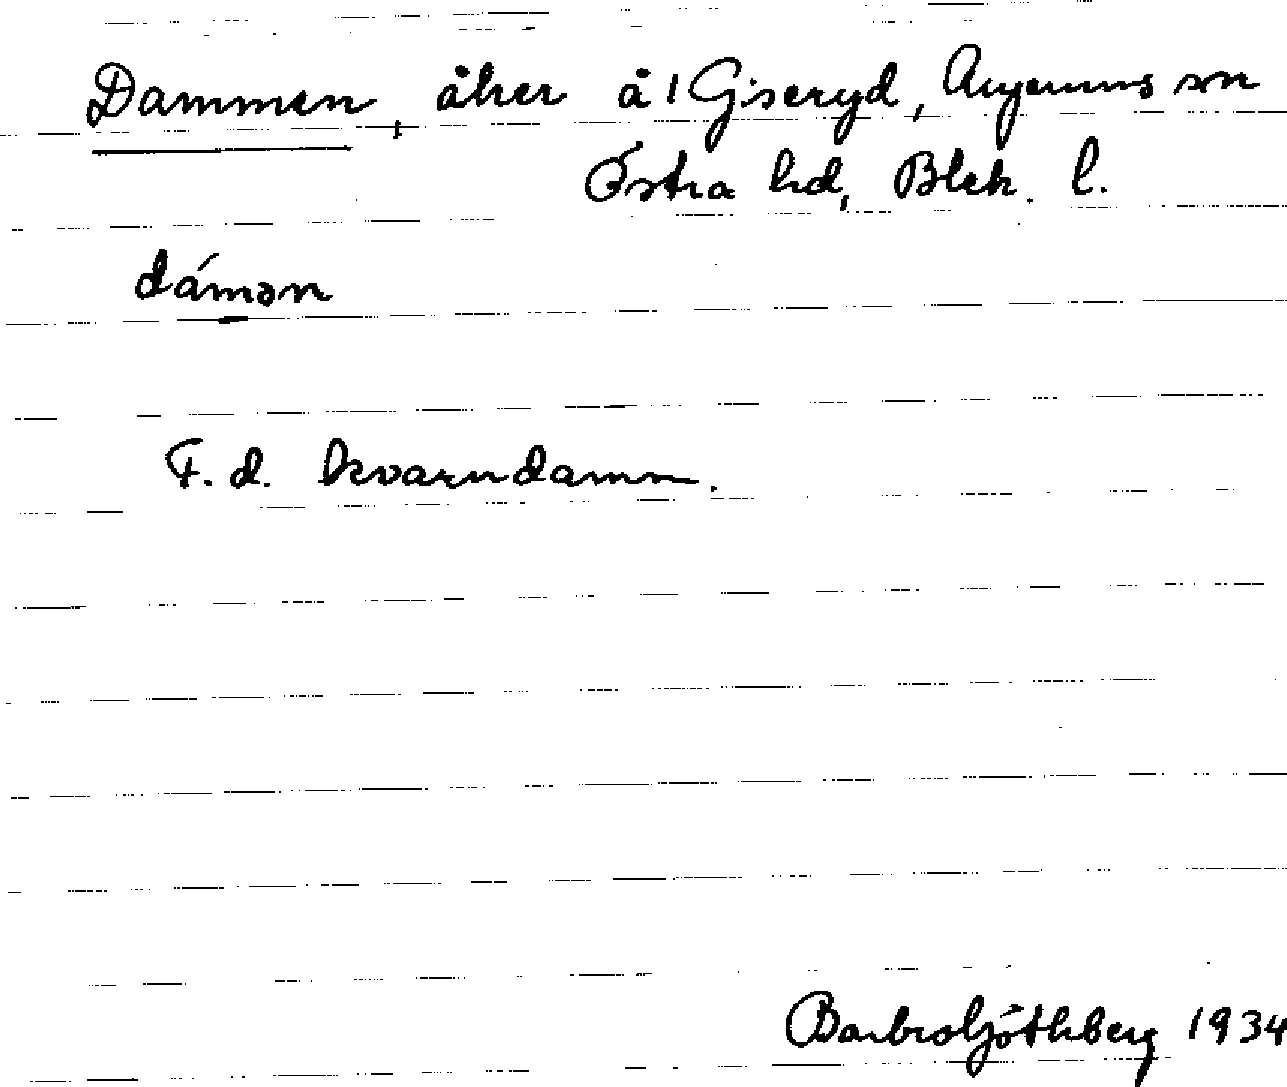 Dammen, åker å 1 Giseryd, Augerums sn
Östra hd, Blek. l.
dámən
F. d. kvarndamm.
Barbro Göthberg 1934